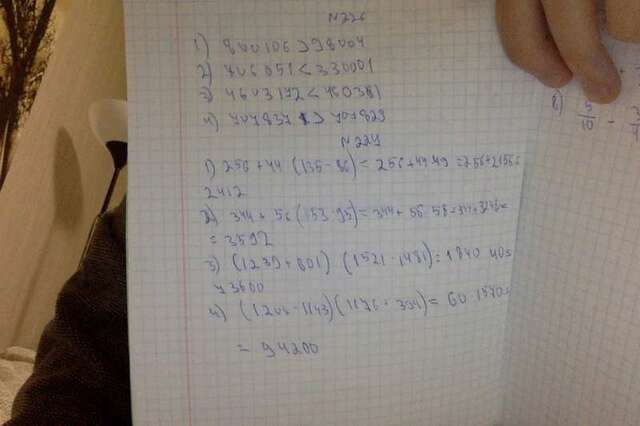 N226
1) 800106 > 98004
2) 706051 < 330001
3) 4603172 < 460381
4) 707837 > 707829
N 224
1) 256 + 44 (135 - 86) = 256 + 44 49 = 256 + 2156 =
2412
2) 344 + 56 (153 - 95) = 344 + 56 58 = 344 + 3248 =
= 3592
3) (1239 + 601) (1521 - 1481) = 1840 40 =
73600
4) (1203 - 1143) (1176 + 394) = 60 1570 =
= 94200
8) 5/10 -